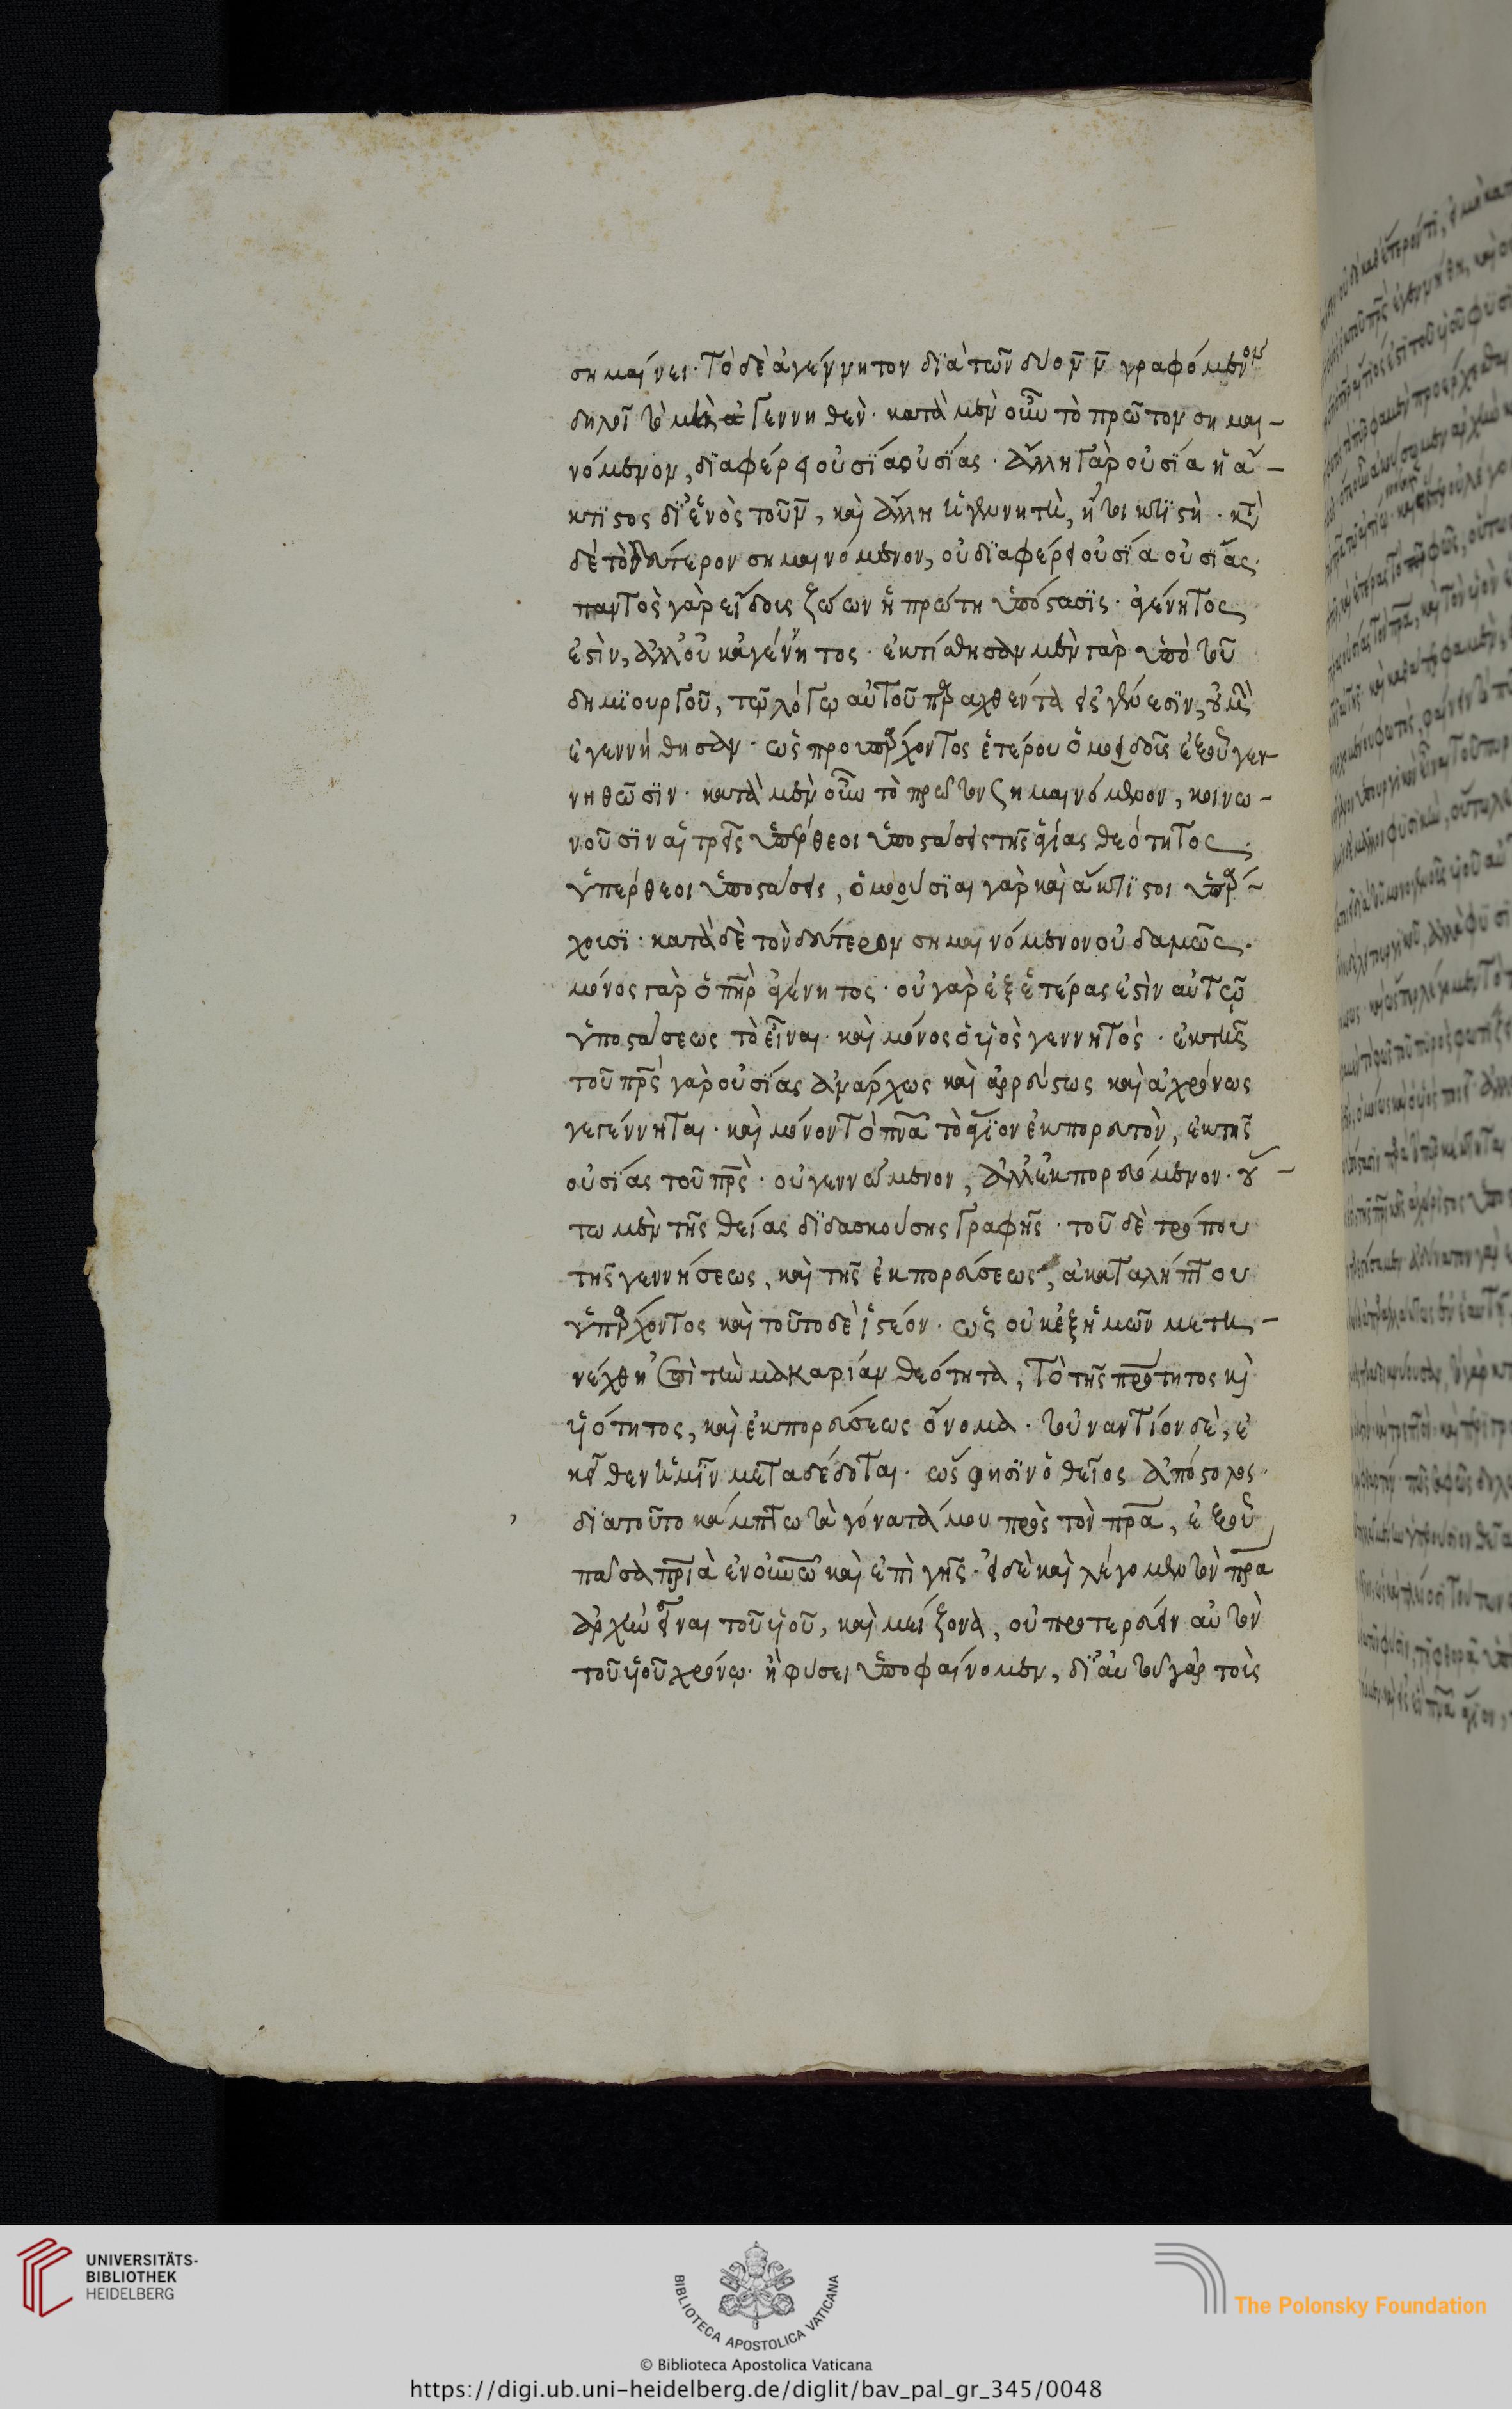 σημαίνει· τὸ δὲ ἀγέννητον διὰ τῶν δύο ν̄ ν̄ γραφόμενον
δηλοῖ τὸ μὴ γεννηθέν· κατὰ μὲν οὖν τὸ πρῶτον σημαι-
νόμενον, διαφέρει οὐσία οὐσίας· ἄλλη γὰρ οὐσία ἡ ἄ-
κτιστος δι' ἑνὸς τοῦ ν̄, καὶ ἄλλη ἡ γενητὴ, ἤτοι κτιστὴ· κατὰ
δὲ τὸ δεύτερον σημαινόμενον, οὐ διαφέρει οὐσία οὐσίας·
παντὸς γὰρ εἴδους ζώων ἡ πρώτη ὑπόστασις· ἀγένητος
ἐστὶν, ἀλλ' οὐκ ἀγέννητος· ἐκτίσθησαν μὲν γὰρ ὑπὸ τοῦ
δημιουργοῦ, τῶ λόγω αὐτοῦ παραχθέντα εἰς γένεσιν, οὐ μὴν
ἐγεννήθησαν· ὡς προϋπάρχοντος ἑτέρου ὁμοειδοῦς ἐξ οὗ γεν-
νηθῶσιν· κατὰ μὲν οὖν τὸ πρῶτον σημαινόμενον, κοινω-
νοῦσιν αἱ τρεῖς ὑπέρθεοι ὑποστάσεις τῆς ἁγίας θεότητος·
ὑπέρθεοι ὑποστάσεις, ὁμοούσιαι γὰρ καὶ ἄκτιστοι ὑπάρ-
χουσι· κατὰ δὲ τὸν δεύτερον σημαινόμενον οὐδαμῶς·
μόνος γὰρ ὁ πηρ ἀγένητος· οὐ γὰρ ἐξ ἑτέρας ἐστὶν αὐτῶ
ὑποστάσεως τὸ εἶναι· καὶ μόνος ὁ υἱὸς γεννητὸς· ἐκ τῆς
τοῦ πρς γὰρ οὐσίας ἀνάρχως καὶ ἀρρεύστως καὶ ἀχρόνως
γεγέννηται· καὶ μόνον τὸ πνα τὸ ἅγιον ἐκπορευτὸν, ἐκ τῆς
οὐσίας τοῦ πρς· οὐ γεννώμενον, ἀλλ' ἐκπορευόμενον· οὕ-
τω μὲν τῆς θείας διδασκούσης γραφῆς· τοῦ δὲ τρόπου
τῆς γεννήσεως, καὶ τῆς ἐκπορεύσεως, ἀκαταλήπτου
ὑπάρχοντος καὶ τοῦτο δὲ ἰστέον· ὡς οὐκ ἐξ ἡμῶν μετη-
νέχθη ἐπὶ τὴν μακαρίαν θεότητα, τὸ τῆς πρότητος καὶ
υἱότητος, καὶ ἐκπορεύσεως ὄνομα· τοὐναντίον δὲ, ἐ
κεῖθεν ἡμῖν μεταδέδοται· ὥς φησὶν ὁ θεῖος ἀπόστολος·
διὰ τοῦτο κάμπτω τὰ γόνατά μου πρὸς τὸν πρα, ἐξ οὗ
πᾶσα πριὰ ἐν οὐνῶ καὶ ἐπὶ γῆς· εἰ δὲ καὶ λέγομεν τὸν πρα
ἀρχὴν εἶναι τοῦ υἱοῦ, καὶ μείζονα, οὐ προτερεύειν αὐτὸν
τοῦ υἱοῦ χρόνῳ· ἢ φύσει ὑποφαίνομεν, δι' αὐτοῦ γὰρ τοὺς
UNIVERSITÄTS-
BIBLIOTHEK
HEIDELBERG
BIBLIOTECA APOSTOLICA VATICANA
The Polonsky Foundation
© Biblioteca Apostolica Vaticana
https://digi.ub.uni-heidelberg.de/diglit/bav_pal_gr_345/0048